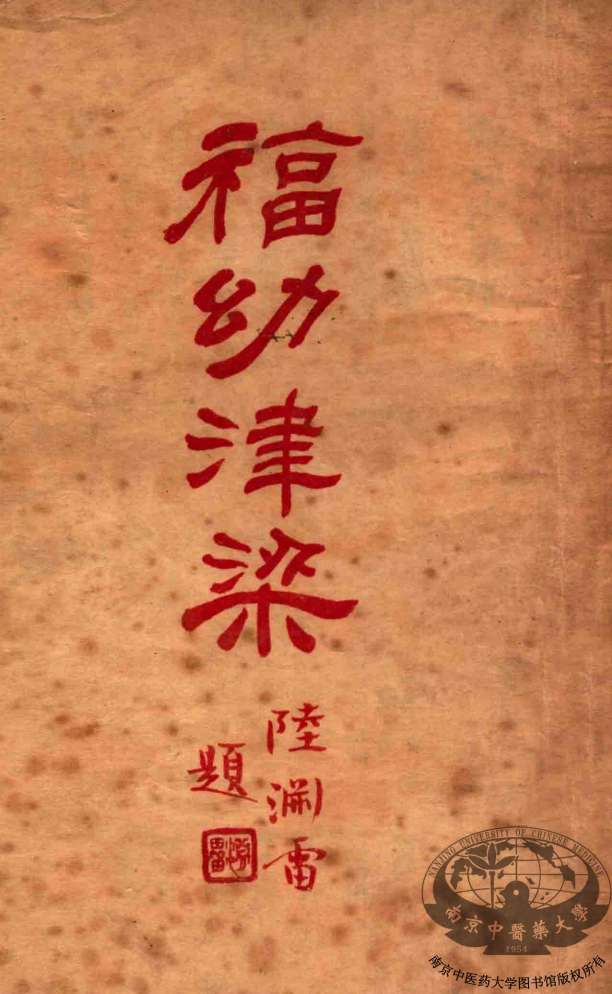 福幼津梁
陸淵雷
題
NANJING UNIVERSITY OF CHINESE MEDICINE
南京中醫藥大學
1954
南京中医药大学图书馆版权所有